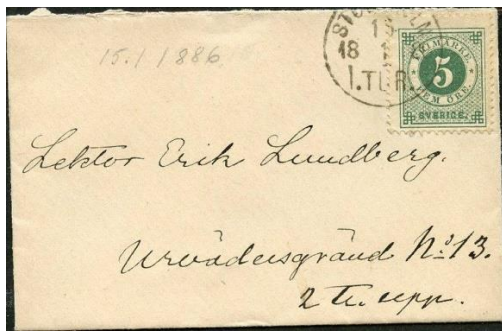 15.1 1886
18
1.TUR.
FRIMÄRKE
5
FEM ÖRE.
SVERIGE.
Lektor Erik Lundberg.
Urvädersgränd No 13.
2 tr. upp.